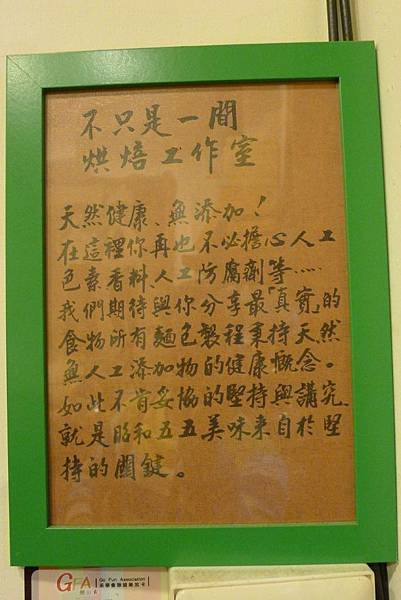 不只是一間
烘焙工作室
天然健康、無添加！
在這裡你再也不必擔心人工
色素香料、人工防腐劑等……
我們期待與你分享最「真實」的
食物所有麵包製程秉持天然
無人工添加物的健康概念。
如此不肯妥協的堅持與講究
就是昭和五五美味來自於堅
持的關鍵。
GFA
Go Fun Association